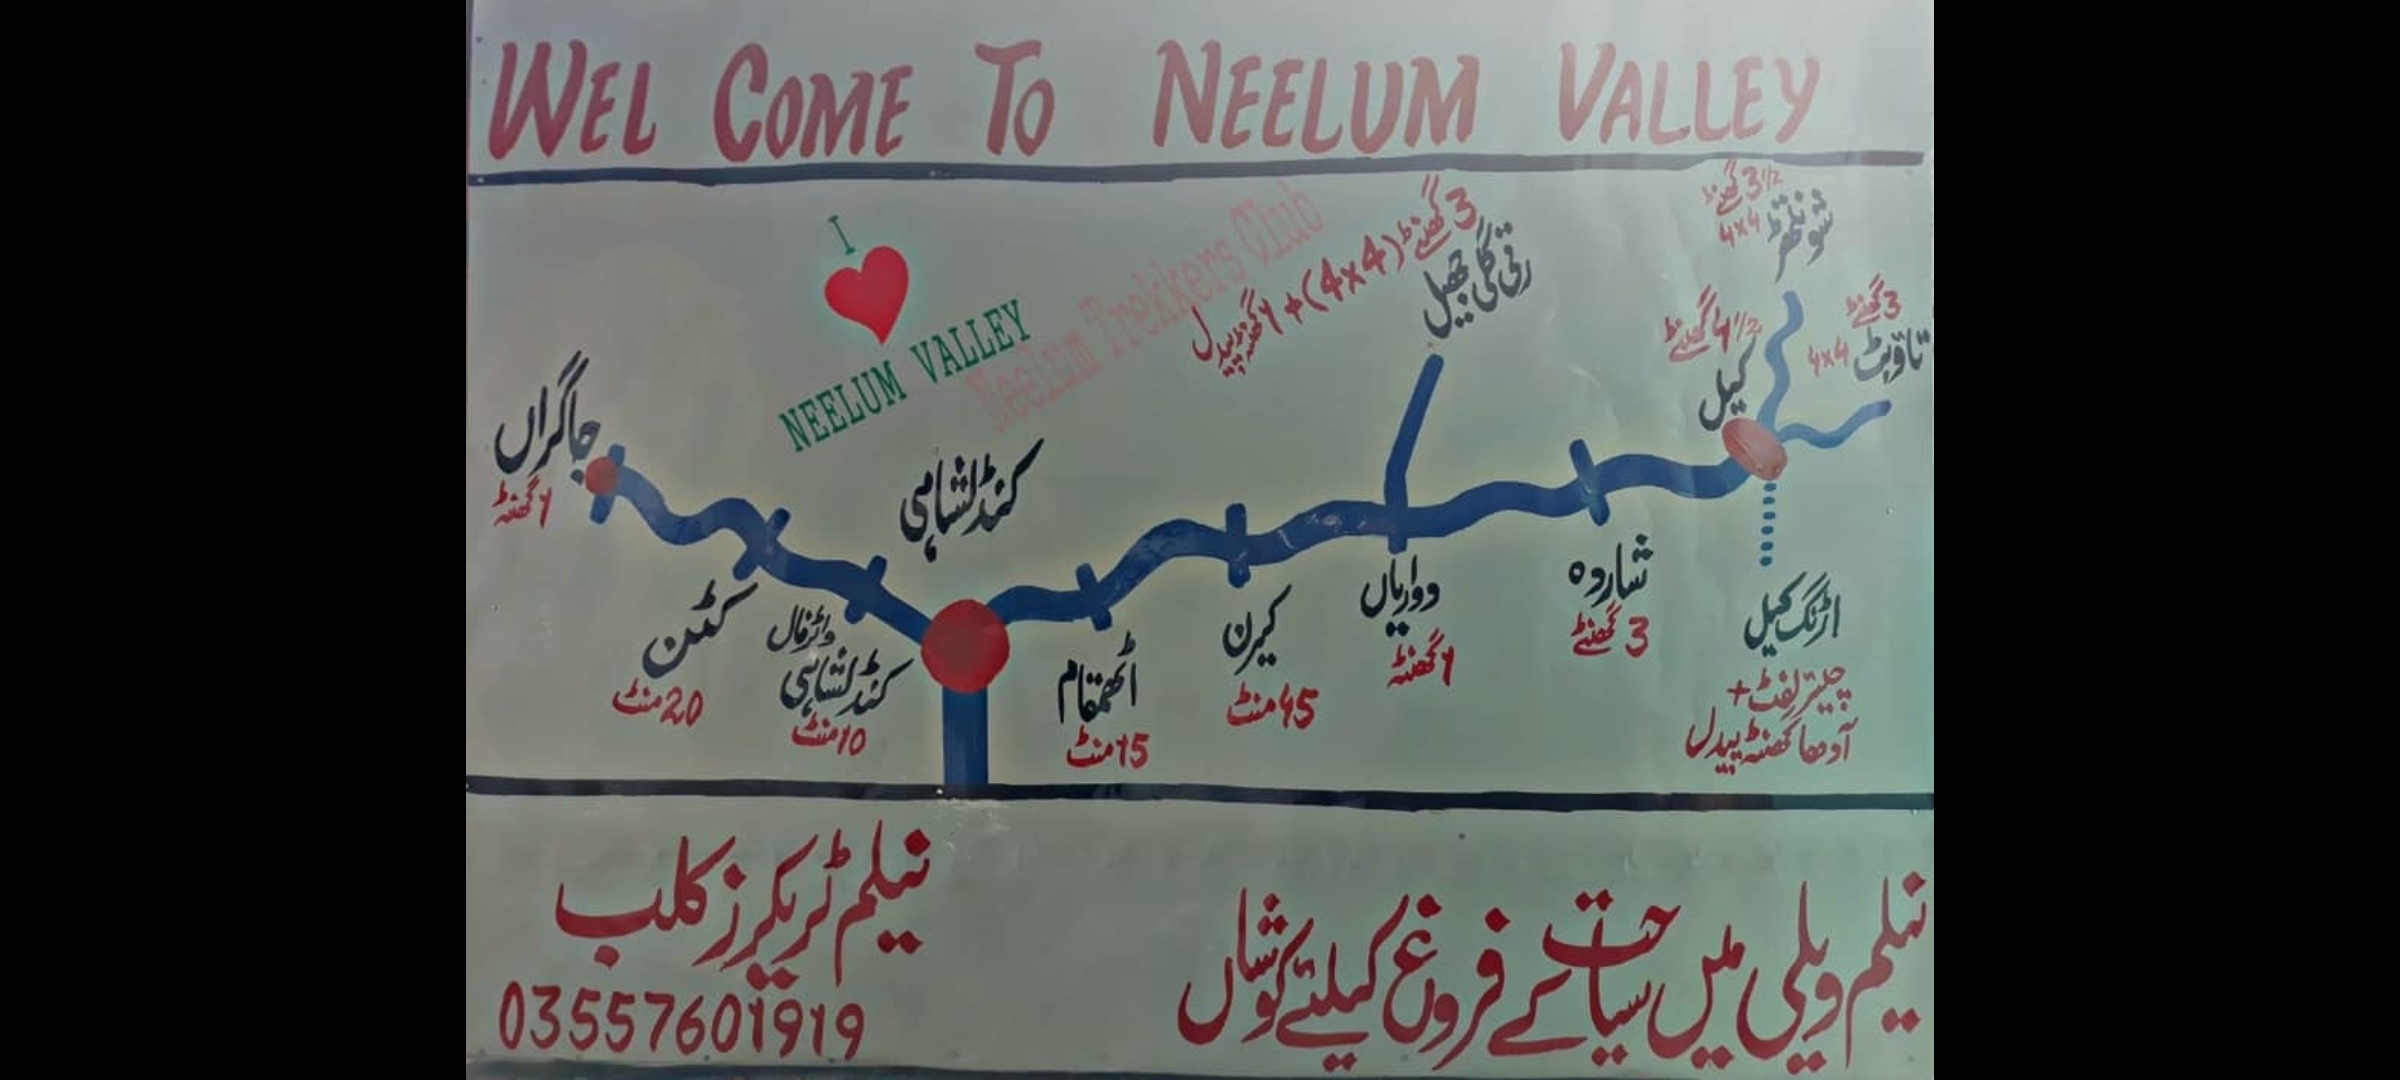 WEL COME TO NEELUM VALLEY
I
NEELUM VALLEY
Neelum Trekkers Club
3 گھنٹے (4x4) + 1 گھنٹہ پیدل
رتی گلی جھیل
3 1/2 گھنٹے
4x4
شونٹھر
4 1/2 گھنٹے
کیل
3 گھنٹے
4x4
تاؤبٹ
جاگراں
1 گھنٹہ
کنڈلشاہی
کٹن
20 منٹ
واٹرفال
کنڈلشاہی
10 منٹ
اٹھمقام
15 منٹ
کیرن
45 منٹ
دواریاں
1 گھنٹہ
شاردہ
3 گھنٹے
اڑنگ کیل
چیئر لفٹ +
آدھا گھنٹہ پیدل
نیلم ٹریکرز کلب
03557601919
نیلم ویلی میں سیاحت کے فروغ کیلئے کوشاں